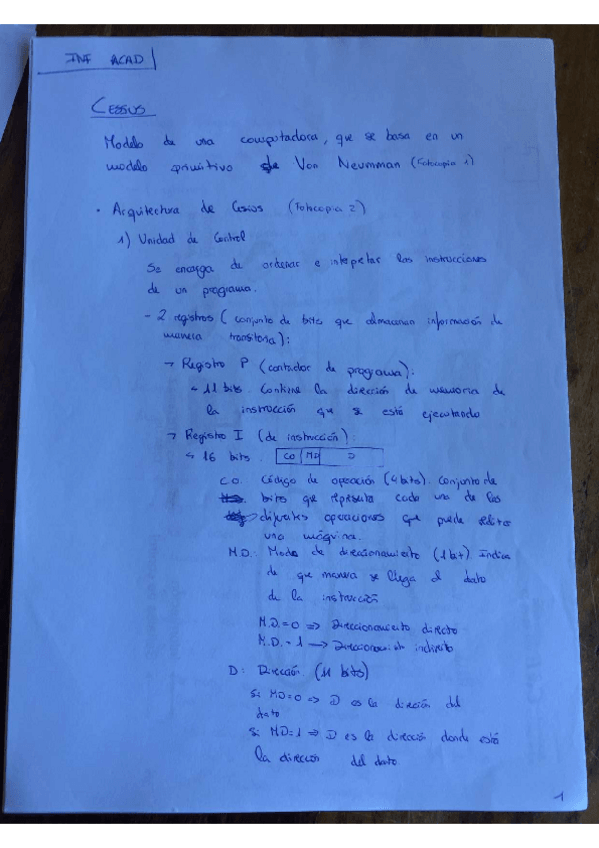 INF ACAD
CESSUS
Modelo de una computadora, que se basa en un
modelo primitivo de Von Neumman (Fotocopia 1)
· Arquitectura de Cesius (Fotocopia 2)
1) Unidad de Control
Se encarga de ordenar e intepretar las instrucciones
de un programa.
- 2 registros (conjunto de bits que almacenan información de
manera transitoria):
→ Registro P (contador de programa):
↳ 11 bits. Contiene la dirección de memoria de
la instrucción que se está ejecutando
→ Registro I (de instrucción):
↳ 16 bits. CO MD D
C.O. Código de operación (4 bits). Conjunto de
bits que representa cada una de las
diferentes operaciones que puede
una máquina.
M.D.: Modo de direccionamiento (1 bit). Indica
de que manera se llega al dato
de la instrucción
M.D.=0 => Direccionamiento directo
M.D.=1 → Direccionamiento indirecto
D: Dirección (11 bits)
Si MD=0 => D es la dirección del
dato
Si MD=1 => D es la dirección donde está
la dirección del dato.
1